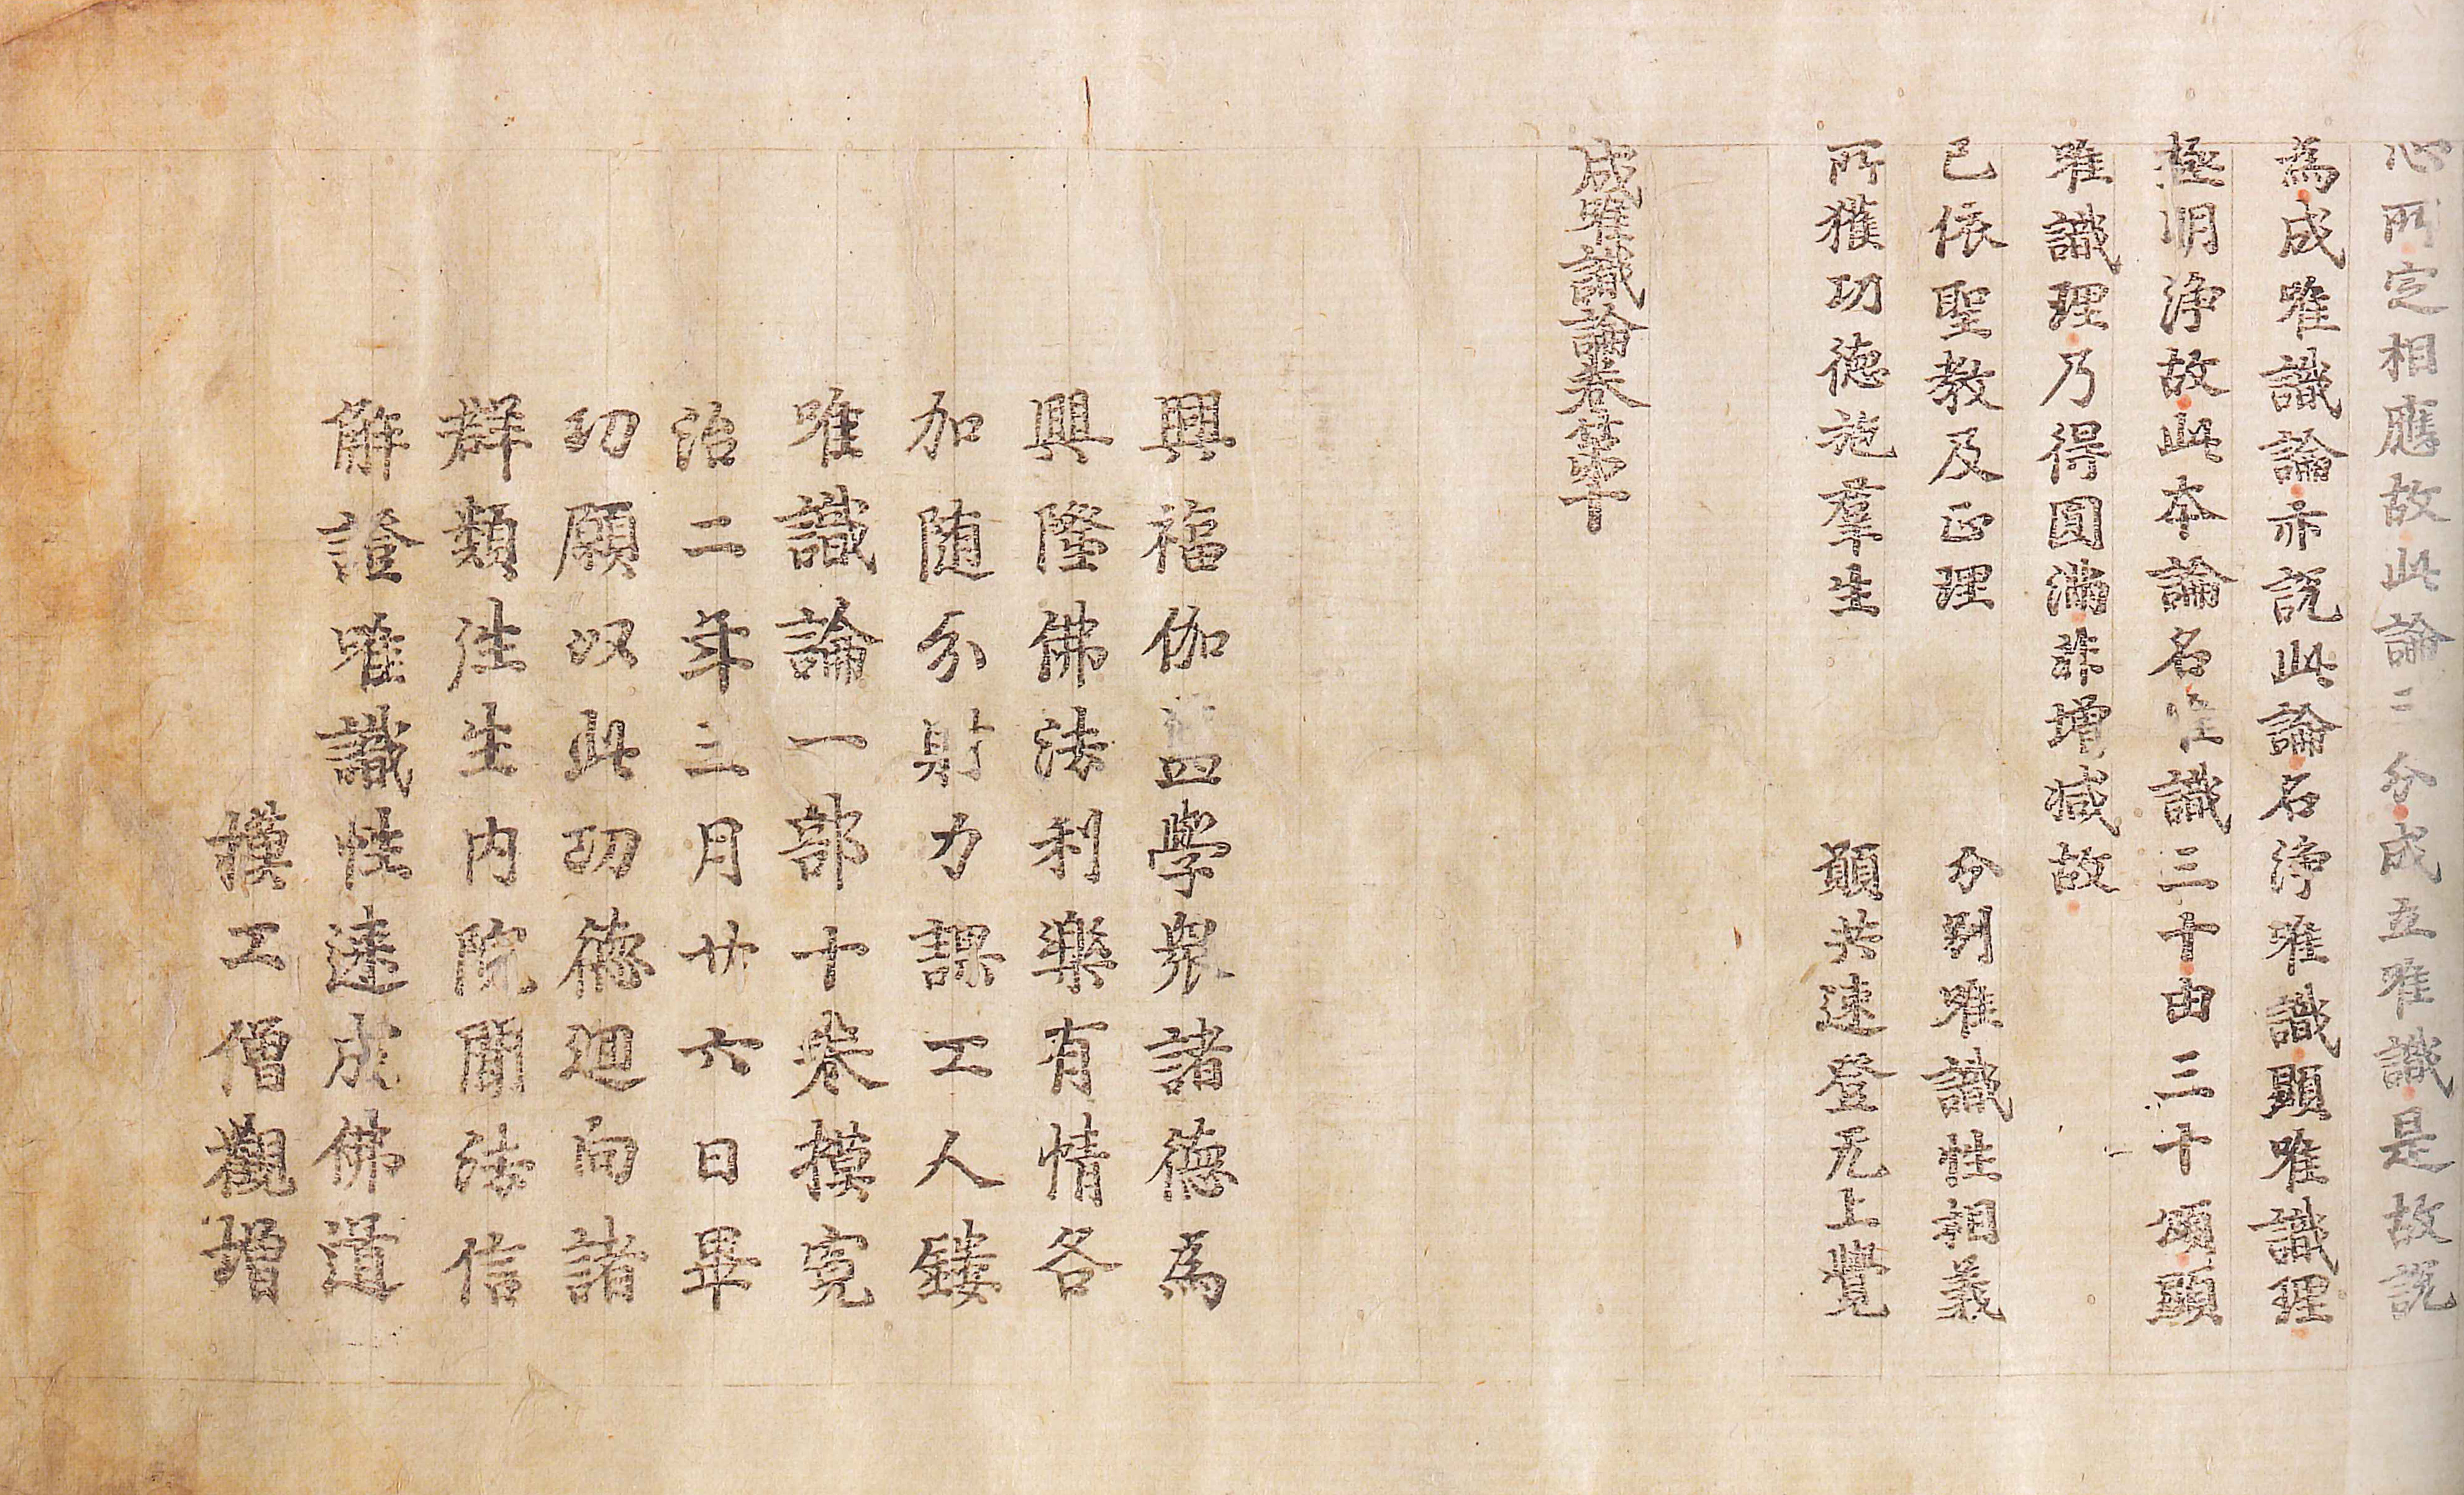 心所定相應故此論三分成立唯識是故說
為成唯識論亦說此論名淨唯識顯唯識理
極明淨故此本論名唯識三十由三十頌顯
唯識理乃得圓滿非增減故
已依聖教及正理　分別唯識性相義
所獲功德施羣生　願共速登无上覺
成唯識論卷第十
興福伽藍學衆諸德為
興隆佛法利樂有情各
加随分財力課工人鏤
唯識論一部十卷摸寛
治二年三月廿六日畢
功願以此功德迴向諸
群類往生內院聞法信
解證唯識性速成佛道
摸工僧觀增